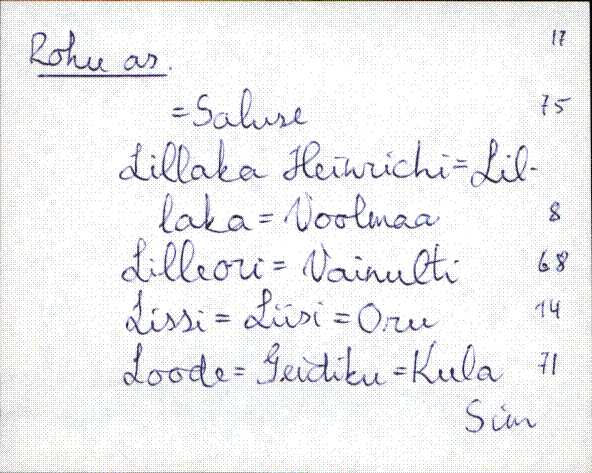 17
Rohu as.
=Saluse 75
Lillaka Heinrichi=Lil-
laka=Voolmaa 8
Lilleori=Vainulti 68
Lissi=Liisi=Oru 14
Loode=Geidiku=Kula 71